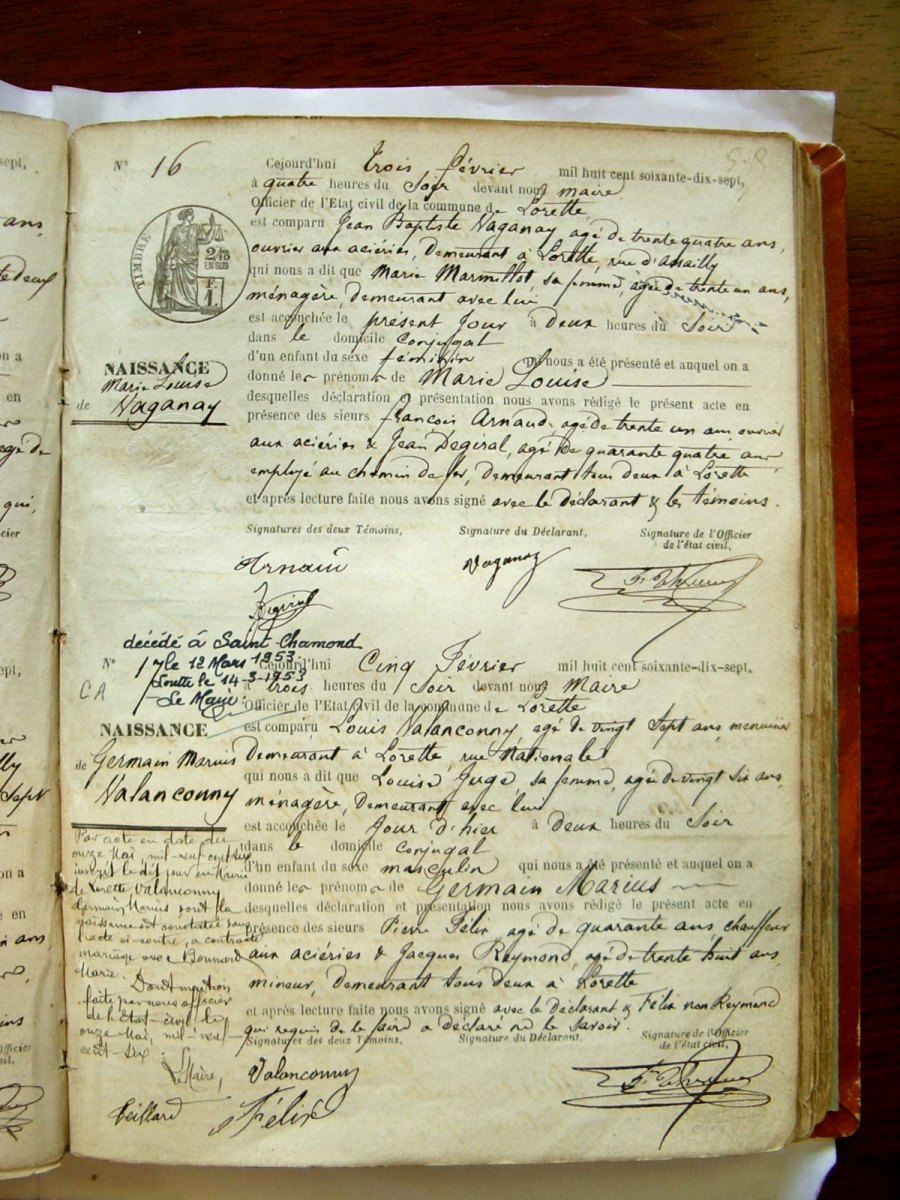 N° 16
Cejourd'hui trois février mil huit cent soixante-dix-sept,
à quatre heures du Soir devant nous maire
Officier de l'Etat civil de la commune de Lorette
est comparu Jean Baptiste Vaganay, agé de trente quatre ans,
ouvrier aux aciéries, demeurant à Lorette, rue d'Assailly
qui nous a dit que Marie Marmillot, sa femme, agée de trente un ans,
ménagère, demeurant avec lui
est accouchée le présent Jour à deux heures du Soir
dans le domicile conjugal
d'un enfant du sexe féminin qui nous a été présenté et auquel on a
donné les prénoms de Marie Louise
desquelles déclaration & présentation nous avons rédigé le présent acte en
présence des sieurs françois Arnaud, agé de trente un ans, ouvrier
aux aciéries & Jean Degiral, agé de quarante quatre ans
employé au chemin de fer, demeurant tous deux à Lorette
et après lecture faite nous avons signé avec le déclarant & les témoins.
TIMBRE
2/10
EN SUS
F.
1
NAISSANCE
Marie Louise
de Vaganay
Signatures des deux Témoins,
Signature du Déclarant,
Signature de l'Officier
de l'état civil,
Arnaud
Vaganay
Degiral
décédé à Saint-Chamond
le 12 Mars 1953
Lorette le 14-3-1953
Le Maire
CA
N° 17
Cejourd'hui Cinq Février mil huit cent soixante-dix-sept,
à trois heures du Soir devant nous Maire
Officier de l'Etat Civil de la commune de Lorette
est comparu Louis Valanconny, agé de vingt sept ans, menuisier
demeurant à Lorette, rue Nationale
qui nous a dit que Louise Juge, sa femme, agée de vingt six ans
ménagère, demeurant avec lui
est accouchée le Jour d'hier à deux heures du Soir
dans le domicile conjugal
d'un enfant du sexe masculin qui nous a été présenté et auquel on a
donné les prénoms de Germain Marius
desquelles déclaration et présentation nous avons rédigé le présent acte en
présence des sieurs Pierre Félix, agé de quarante ans, chauffeur
aux aciéries & Jacques Reymond, agé de trente huit ans,
mineur, demeurant tous deux à Lorette
et après lecture faite nous avons signé avec le Déclarant & Félix non Reymond
qui requis de le faire a déclaré ne le savoir.
NAISSANCE
de Germain Marius
Valanconny
Par acte en date du
onze Mai, mil-neuf cent six
inscrit le dit jour en Mairie
de Lorette, Valanconny
Germain Marius dont la
naissance est constatée par
l'acte ci-contre, a contracté
mariage avec Bonnard
Marie. Dont mention
faite par nous officier
de l'état-civil, le
onze Mai, mil-neuf-
cent-six.
Le Maire,
Signatures des deux Témoins,
Signature du Déclarant,
Signature de l'Officier
de l'état civil,
Valanconny
Teillard
Félix